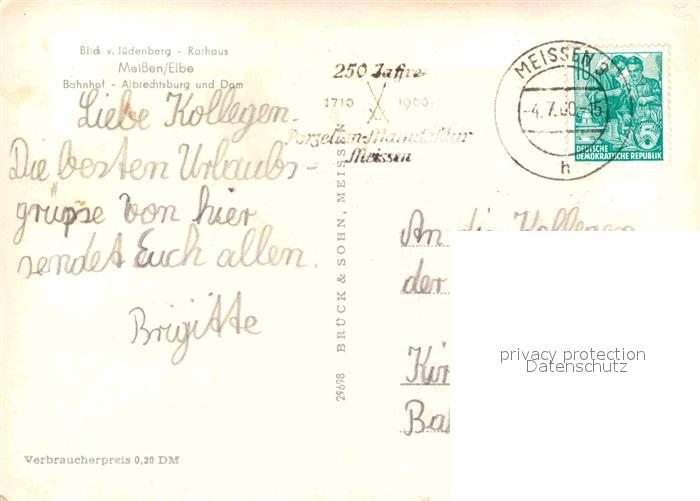 Blick v. Jüdenberg - Rathaus
Meißen/Elbe
Bahnhof - Albrechtsburg und Dom
Liebe Kollegen.
Die besten Urlaubs-
grüpse von hier
sendet Euch allen.
Brigitte
Verbraucherpreis 0,20 DM
29698 BRÜCK & SOHN, MEISSEN
250 Jahre
1710 1960
Porzellan-Manufaktur
Meissen
MEISSEN 3
-4.7.60.-15
h
10
5
DEUTSCHE
DEMOKRATISCHE REPUBLIK
An die Kollegen
der
privacy protection
Datenschutz